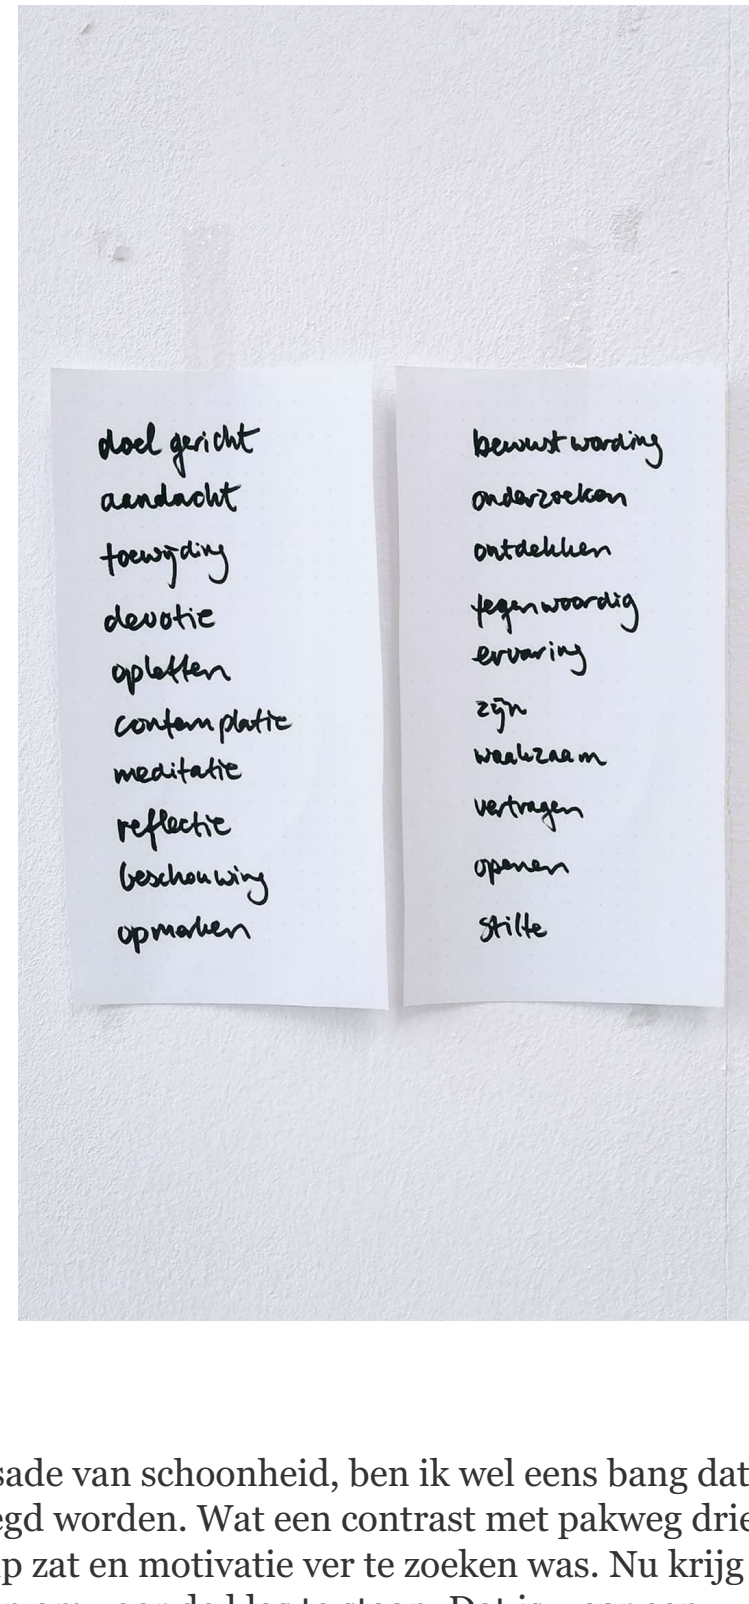 doelgericht
aandacht
toewijding
devotie
opletten
contemplatie
meditatie
reflectie
beschouwing
opmerken
bewustwording
onderzoeken
ontdekken
tegenwoordig
ervaring
zijn
waakzaam
vertragen
openen
stilte
sade van schoonheid, ben ik wel eens bang dat
egd worden. Wat een contrast met pakweg drie
p zat en motivatie ver te zoeken was. Nu krijg